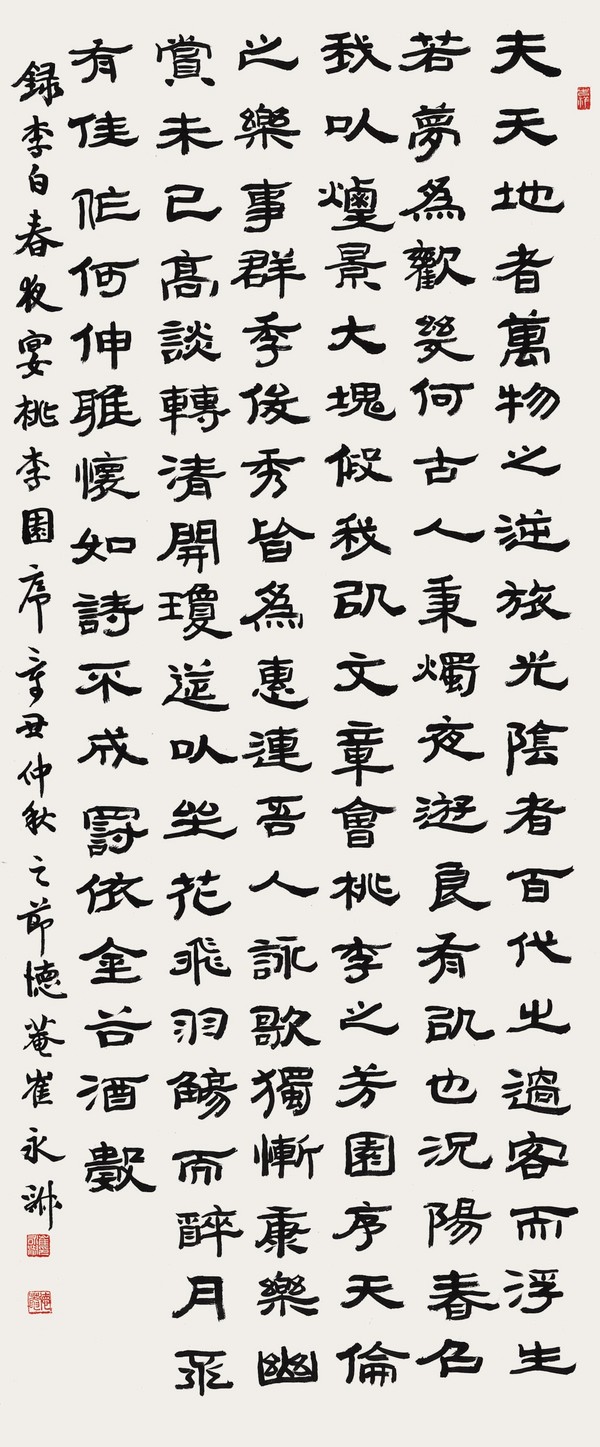 夫天地者萬物之逆旅光陰者百代之過客而浮生
若夢爲歡幾何古人秉燭夜遊良有以也況陽春召
我以煙景大塊假我以文章會桃李之芳園序天倫
之樂事群季俊秀皆爲惠連吾人詠歌獨慚康樂幽
賞未已高談轉清開瓊筵以坐花飛羽觴而醉月不
有佳作何伸雅懷如詩不成罰依金谷酒數
録李白春夜宴桃李園序辛丑仲秋之節德菴崔永